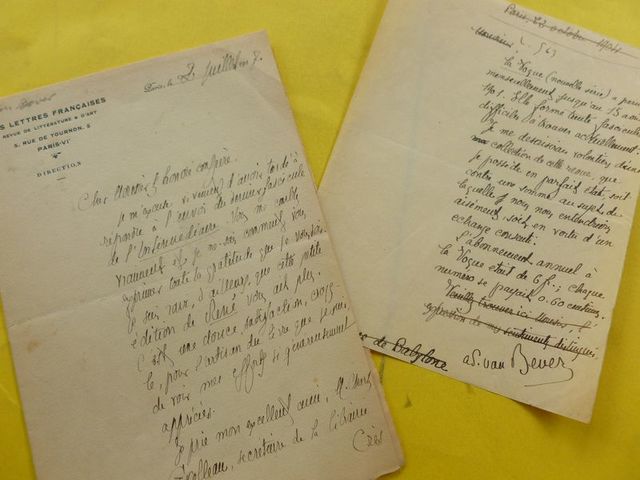 LETTRES FRANÇAISES
REVUE DE LITTÉRATURE & D'ART
5, RUE DE TOURNON, 5
PARIS-VIe
DIRECTION
Juillet
Cher Monsieur & honoré confrère.
je m'excuse si vivement d'avoir tardé à
répondre à l'envoi du fascicule
de l'Intermédiaire. Vous me
vraiment et je ne sais comment vous
exprimer toute la gratitude que je vous dois.
Je suis ravi, d'ailleurs, que cette petite
édition de René vous ait plu.
C'est une douce satisfaction, croyez-
le, pour l'artisan du livre que je suis,
de voir mes efforts si généreusement
appréciés.
Je prie mon excellent ami, M.
secrétaire de la librairie
Crès
Paris, 23 octobre 1904
Monsieur
La Vogue (nouvelle série) a paru
mensuellement jusqu'au 15
1901. Elle forme trente fascicules
difficiles à trouver actuellement.
Je me dessaisirais volontiers de
ma collection de cette revue, que
je possède en parfait état, soit
contre une somme au sujet de
laquelle nous nous entendrions
aisément, soit en vertu d'un
échange consenti.
L'abonnement annuel à
la Vogue était de 6 f.; chaque
numéro se payait 0.60 centimes.
Veuillez trouver ici Monsieur, l'
expression de mes sentiments distingués
de Babylone
ad. van Bever